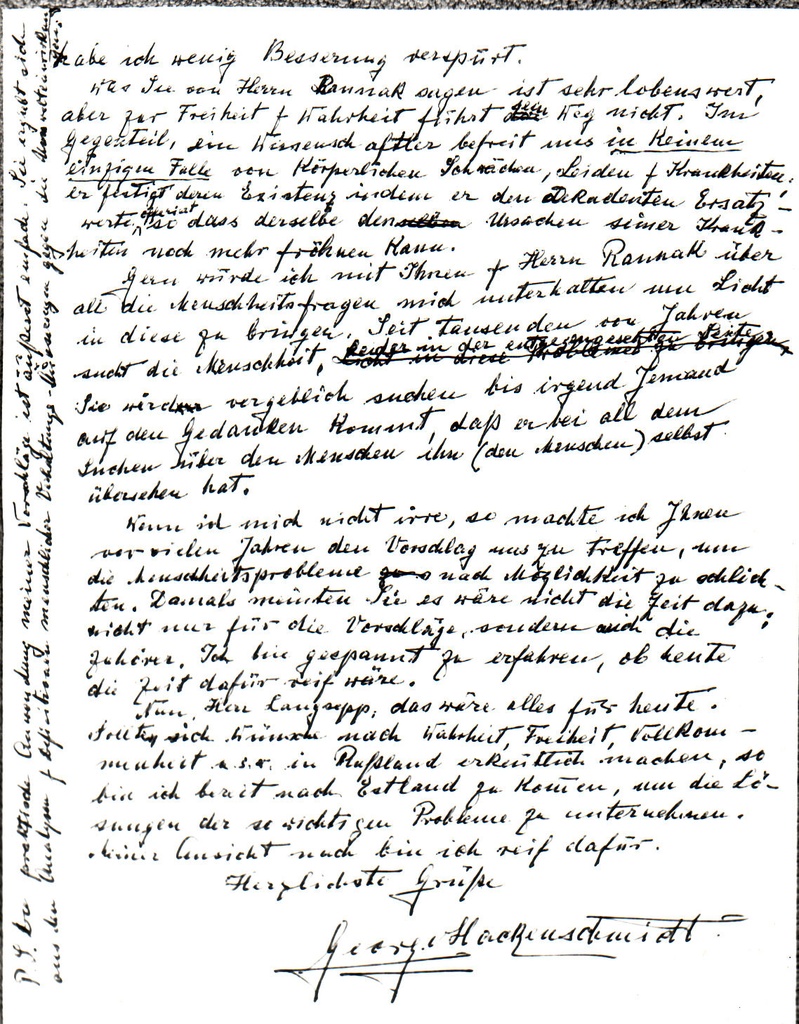 habe ich wenig Besserung verspürt.
Was Sie von Herrn Rannak sagen ist sehr lobenswert,
aber zur Freiheit & Wahrheit führt sein Weg nicht. Im
Gegenteil, ein Wissenschaftler befreit uns in Keinem
einzigen Falle von Körperlichen Schwächen, Leiden & Krankheiten:
er fertigt deren Existenz indem er den DeKadenten Ersatz-
werte, so dass derselbe den Ursachen seiner Krank-
heiten noch mehr fröhnen Kann.
Gern würde ich mit Ihnen & Herrn Rannak über
all die Menschheitsfragen mich unterhalten um Licht
in diese zu bringen. Seit tausenden von Jahren
sucht die Menschheit, leider in der entgegengesetzten Seite
Licht in diese Probleme zu bringen,
Sie wird vergeblich suchen bis irgend Jemand
auf den Gedanken Kommt, daß er bei all dem
Suchen über den Menschen ihn (den Menschen) selbst
übersehen hat.
Wenn ich mich nicht irre, so machte ich Ihnen
vor vielen Jahren den Vorschlag uns zu treffen, um
die Menschheitsprobleme nach MöglichKeit zu schlich-
ten. Damals meinten Sie es wäre nicht die Zeit dazu;
nicht nur für die Vorschläge, sondern auch die
Zuhörer. Ich bin gespannt zu erfahren, ob heute
die Zeit dafür reif wäre.
Nun, Herr Langsepp, das wäre alles für heute.
Sollten sich Wünsche nach Wahrheit, Freiheit, Vollkom-
menheit u.s.w. in Rußland erkentlich machen, so
bin ich bereit nach Estland zu Kommen, um die Lö-
sungen der so wichtigen Probleme zu unternehmen.
Meiner Ansicht nach bin ich reif dafür.
Herzlichste Grüße
George Hackenschmidt
P.S. Die praktische Anwendung meiner Vorschläge ist äußerst einfach. Sie ergibt sich
aus den Analysen & Definitionen menschlicher Verhaltungs- gegen die